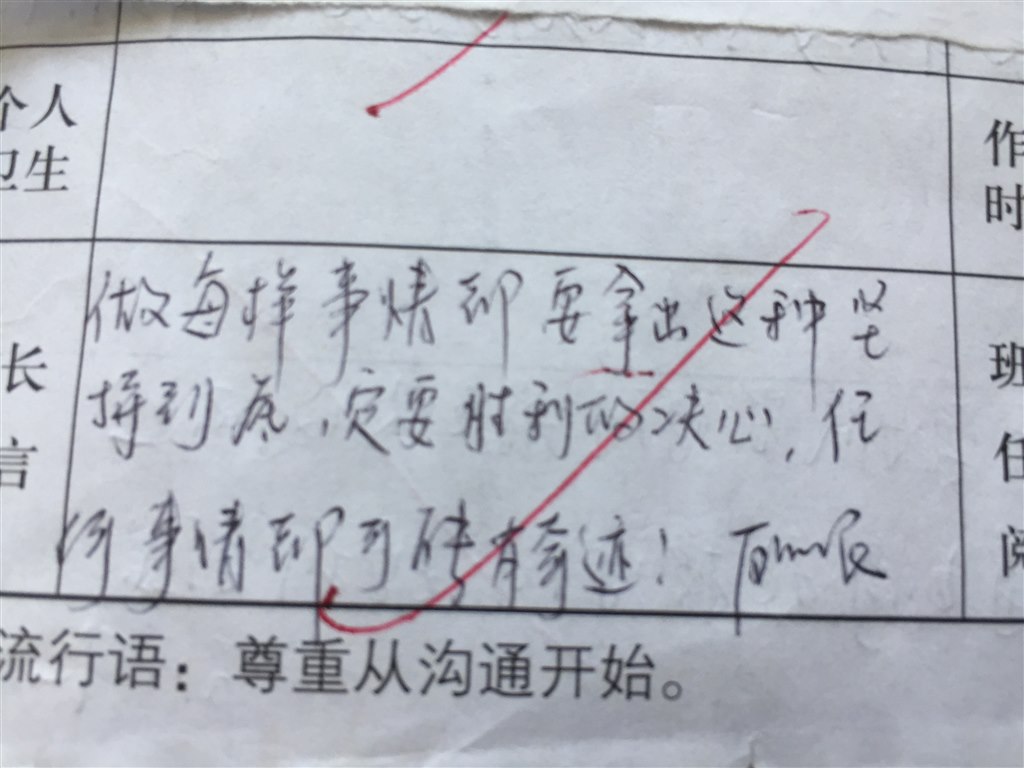 个人
卫生
作
时
做每样事情都要拿出这种坚
拼到底,一定要胜利的决心,任
何事情都可能有奇迹!
长
言
班
任
阅
流行语:尊重从沟通开始。